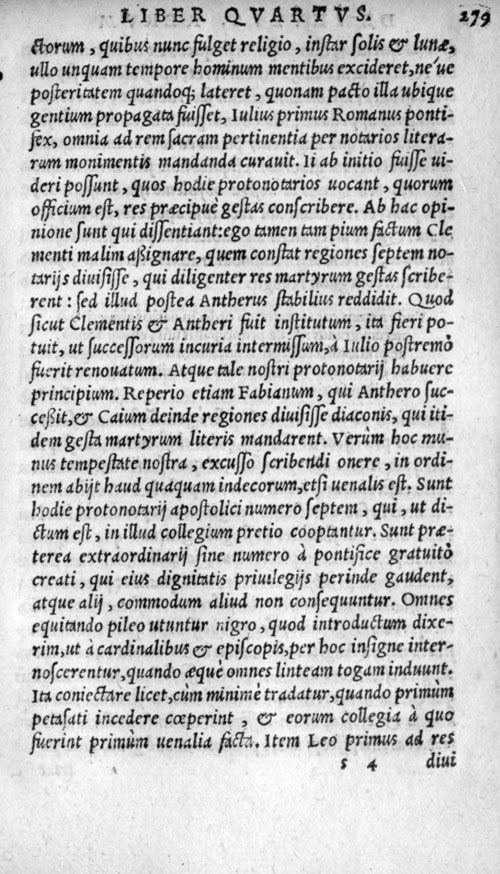 LIBER QVARTVS. 279
ctorum, quibus nunc fulget religio, instar solis & lunæ,
ullo unquam tempore hominum mentibus excideret, ne'ue
posteritatem quandoq; lateret, quonam pacto illa ubique
gentium propagata fuisset, Iulius primus Romanus ponti-
fex, omnia ad rem sacram pertinentia per notarios litera-
rum monimentis mandanda curauit. Ii ab initio fuisse ui-
deri possunt, quos hodie protonotarios uocant, quorum
officium est, res præcipuè gestas conscribere. Ab hac opi-
nione sunt qui dissentiant: ego tamen tam pium factum Cle
menti malim aßignare, quem constat regiones septem no-
tarijs diuisisse, qui diligenter res martyrum gestas scribe-
rent: sed illud postea Antherus stabilius reddidit. Quod
sicut Clementis & Antheri fuit institutum, ita fieri po-
tuit, ut successorum incuria intermissum, à Iulio postremò
fuerit renouatum. Atque tale nostri protonotarij habuere
principium. Reperio etiam Fabianum, qui Anthero suc-
ceßit, & Caium deinde regiones diuisisse diaconis, qui iti-
dem gesta martyrum literis mandarent. Verùm hoc mu-
nus tempestate nostra, excusso scribendi onere, in ordi-
nem abijt haud quaquam indecorum, etsi uenalis est. Sunt
hodie protonotarij apostolici numero septem, qui, ut di-
ctum est, in illud collegium pretio cooptantur. Sunt præ-
terea extraordinarij sine numero à pontifice gratuitò
creati, qui eius dignitatis priuilegijs perinde gaudent,
atque alij, commodum aliud non consequuntur. Omnes
equitando pileo utuntur nigro, quod introductum dixe-
rim, ut à cardinalibus & episcopis, per hoc insigne inter-
noscerentur, quando æquè omnes linteam togam induunt.
Ita coniectare licet, cùm minimè tradatur, quando primùm
petasati incedere cœperint, & eorum collegia à quo
fuerint primùm uenalia facta. Item Leo primus ad res
s 4 diui